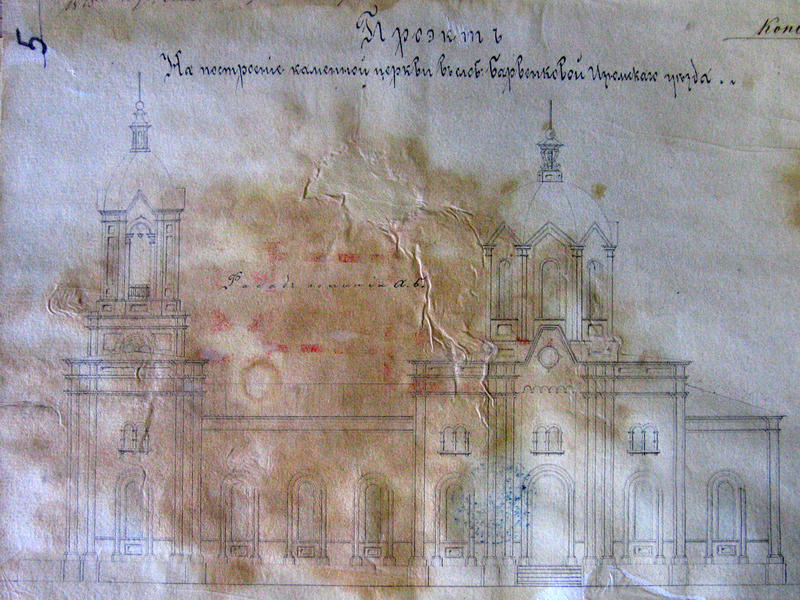 5
Копі
Проэктъ
На построеніе каменной церкви въ слоб. Барвенковой Изюмскаго уѣзда..
Фасадъ по линіи А.Б.